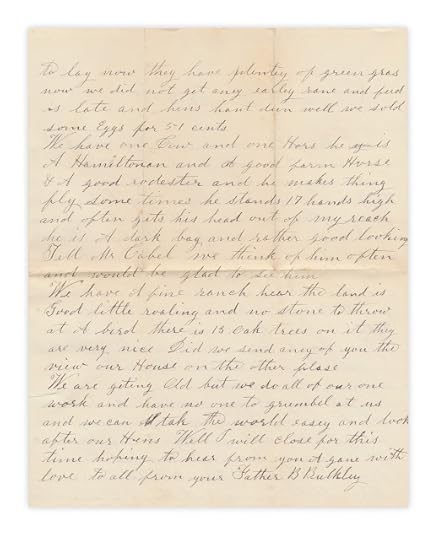 to lay now they have plentey of green gras
now we did not get aney earley rane and feed
is late and hens hant dun well we sold
some Eggs for 51 cents
We have one Cow and one Hors he is
A Hamiltonan and A good farm Horse
& A good rodester and he makes thing
fly some times he stands 17 hands high
and often gets his head out of my reach
he is A dark bay and rather good looking
Tell Mr Cabel we think of him often
and would be glad to see him
We have A fine ranch hear the land is
Good little roaling and no stone to throw
at A berd there is 15 Oak trees on it they
are very nice Did we send aney of you the
view our House on the other plase
We are geting Old but we do all of our one
work and have no one to grumbel at us
and we can tak the world easey and look
after our Hens Well I will close for this
time hoping to hear from you A gane with
love to all from your Father B Bulkley